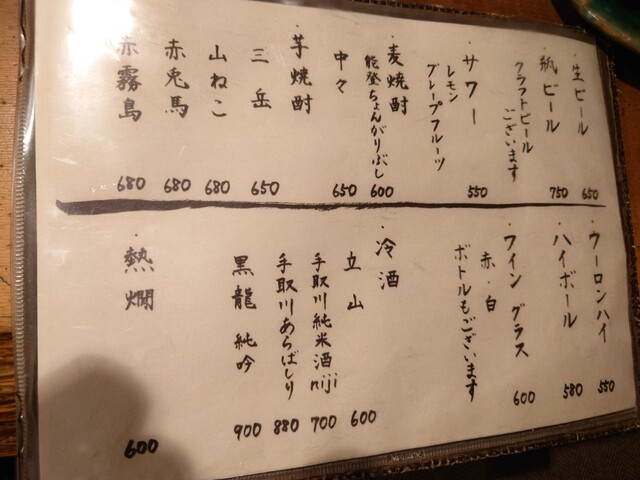 ・生ビール 650
・瓶ビール 750
クラフトビール
ございます
・サワー 550
レモン
グレープフルーツ
・麦焼酎
能登ちょんがりぶし 600
中々 650
・芋焼酎
三岳 650
山ねこ 680
赤兎馬 680
赤霧島 680
・ウーロンハイ 550
・ハイボール 580
・ワイングラス 600
赤・白
ボトルもございます
・冷酒
立山 600
手取川純米酒niji 700
手取川あらばしり 880
黒龍 純吟 900
・熱燗 600